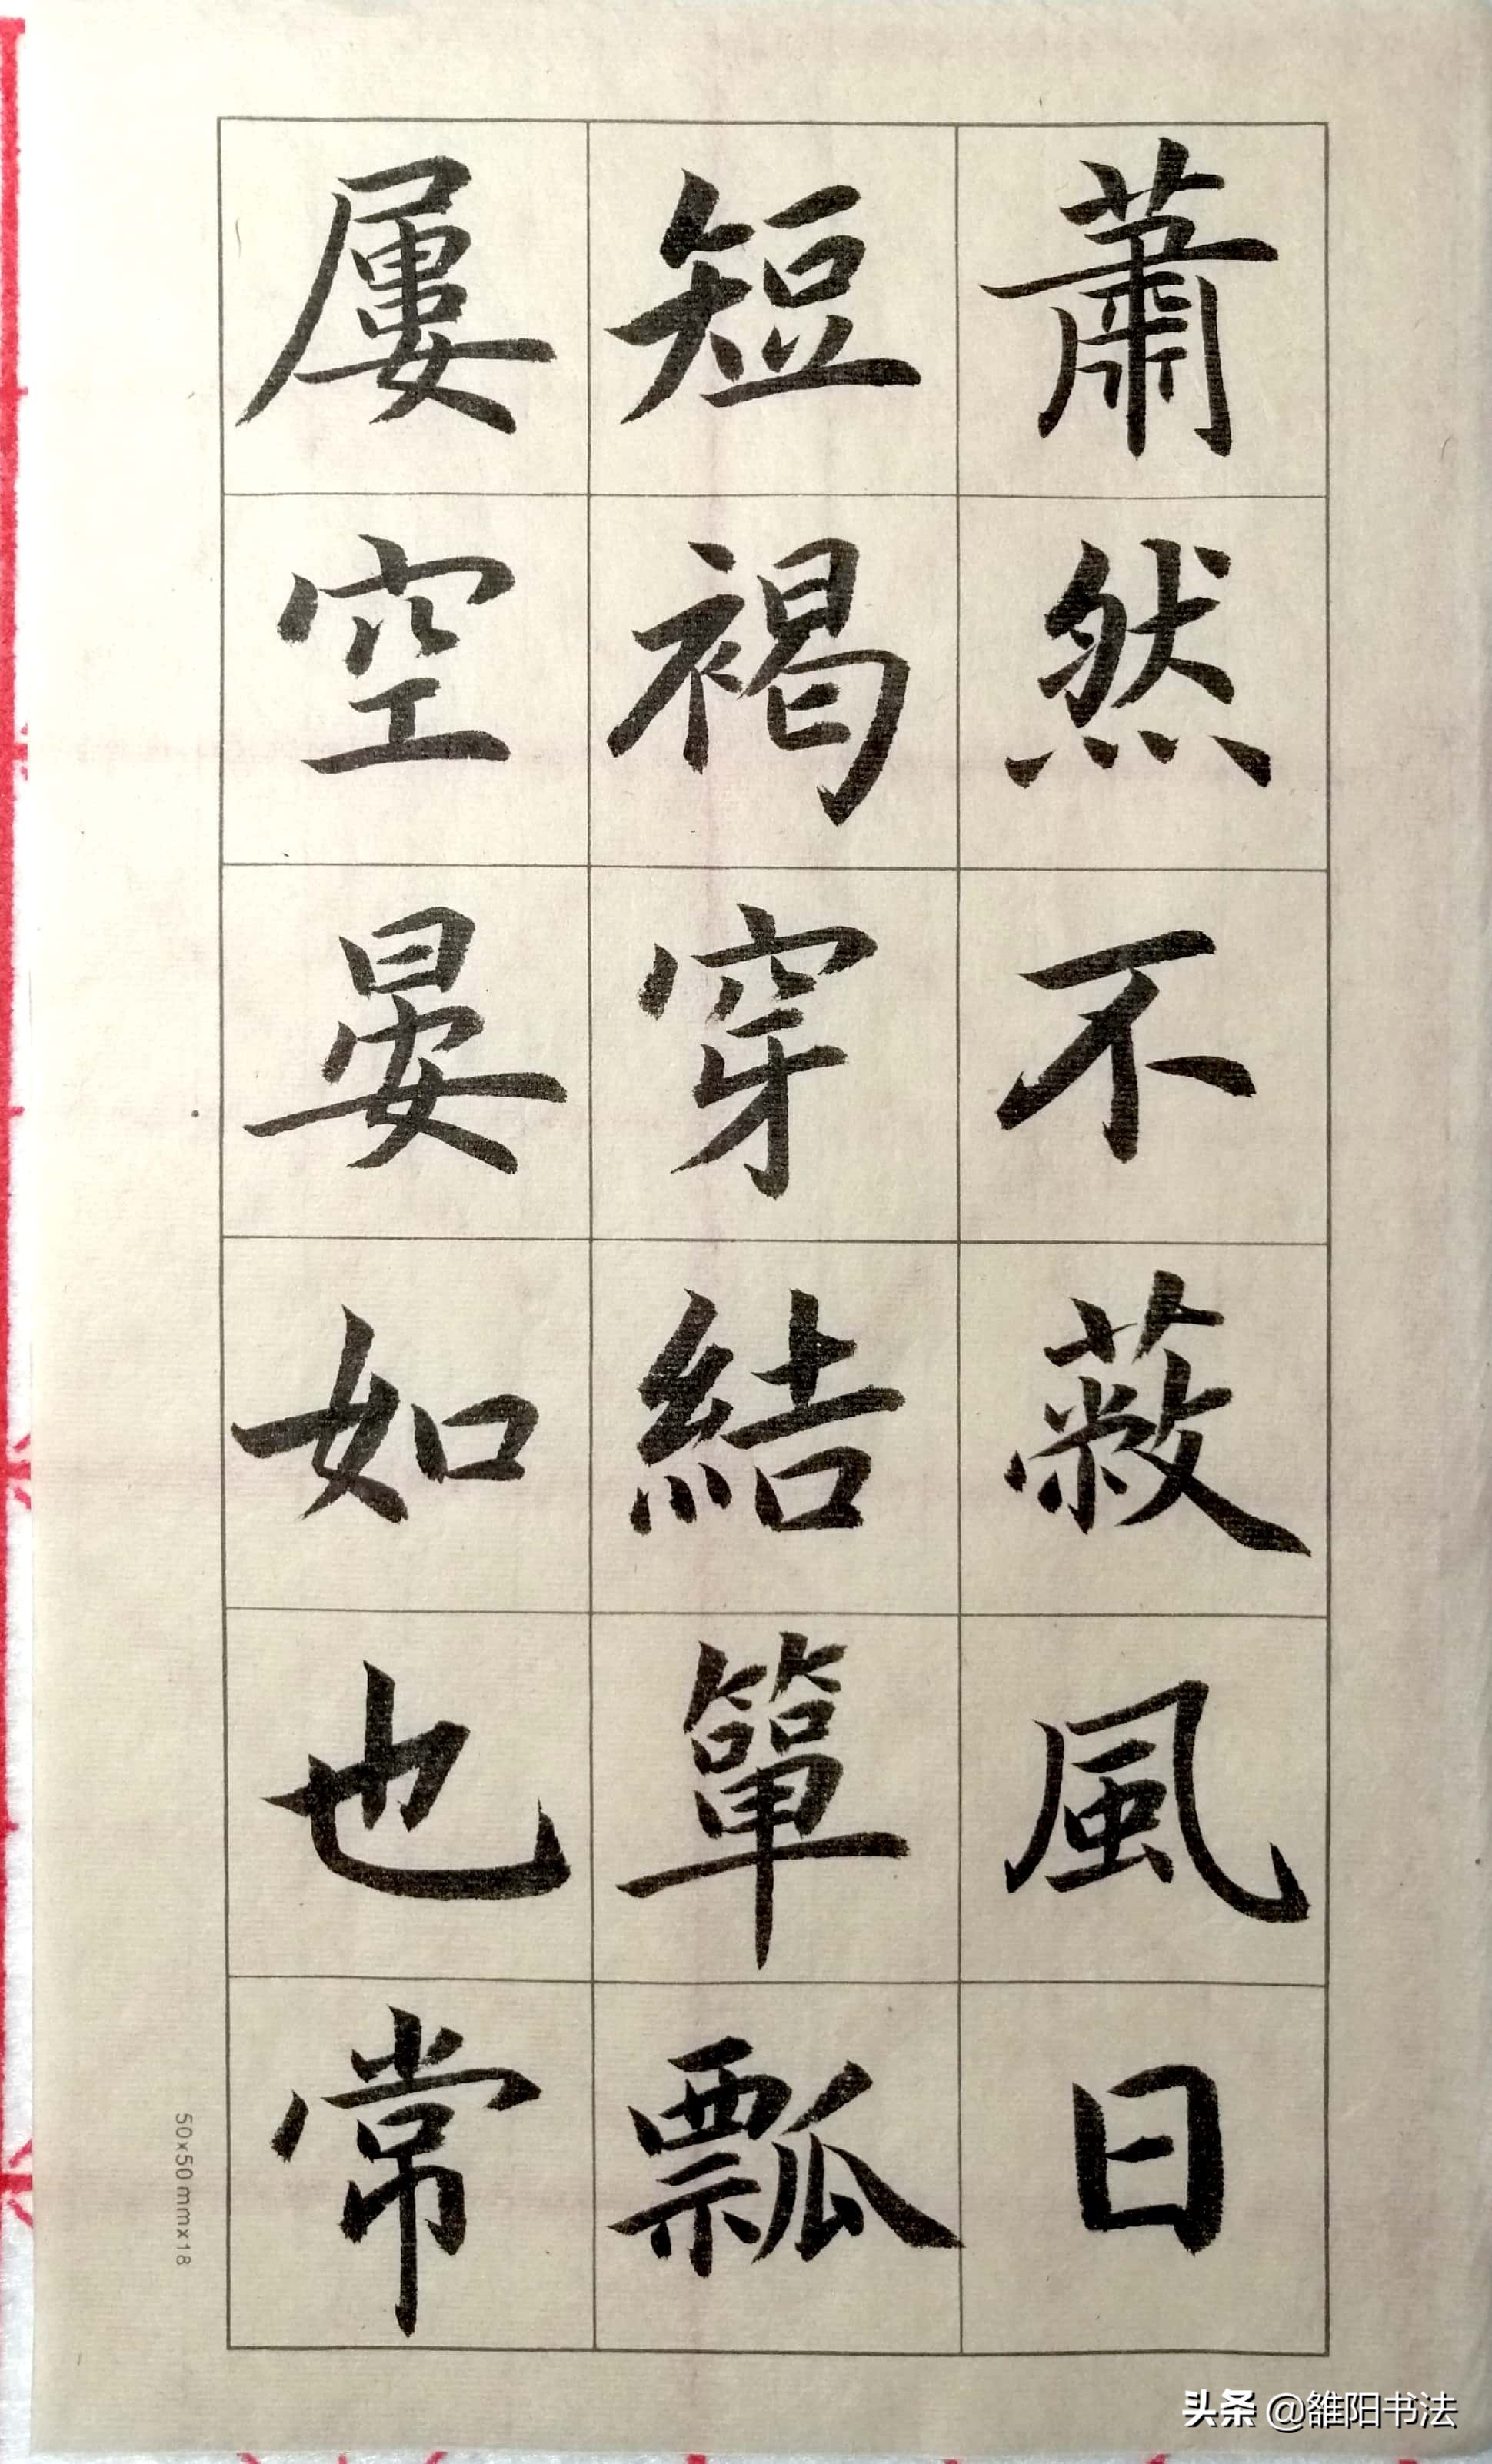 蕭然不蔽風日
短褐穿結簞瓢
屢空晏如也常
50×50mm×18
头条 @雒阳书法